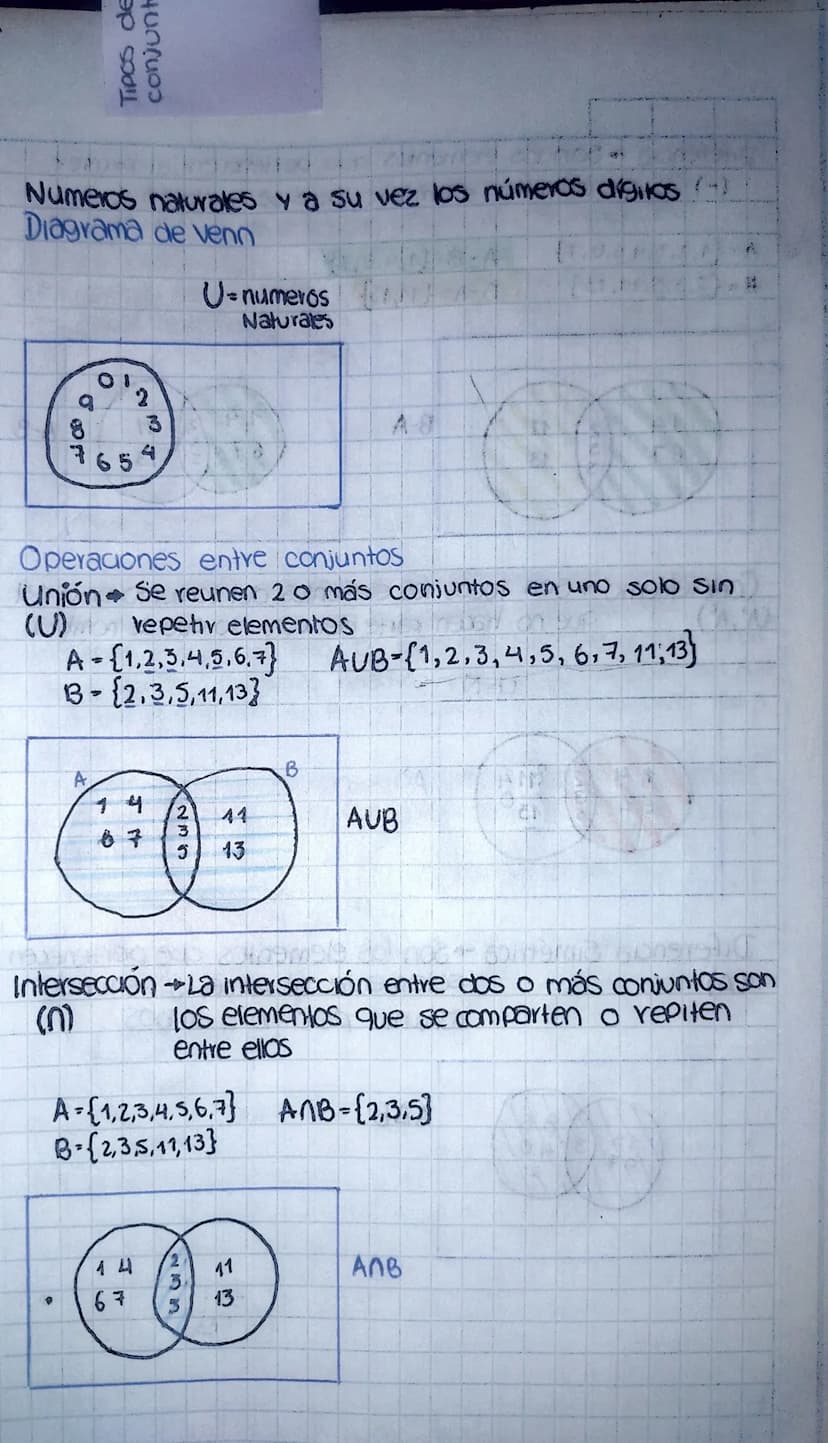 Tipos de
conjunt
Numeros naturales y a su vez los números dígitos
Diagrama de venn
U = numeros
Naturales
0 1
9 2
8 3
7 6 5 4
Operaciones entre conjuntos
Unión → Se reunen 2 o más conjuntos en uno solo sin
(U) repetir elementos
A = {1,2,3,4,5,6,7} AUB={1,2,3,4,5,6,7,11,13}
B = {2,3,5,11,13}
A B
1 4 2 11
6 7 3 13
5
AUB
Intersección → La intersección entre dos o más conjuntos son
(∩) los elementos que se comparten o repiten
entre ellos
A={1,2,3,4,5,6,7} A∩B={2,3,5}
B={2,3,5,11,13}
1 4 2 11
6 7 3 13
5
A∩B